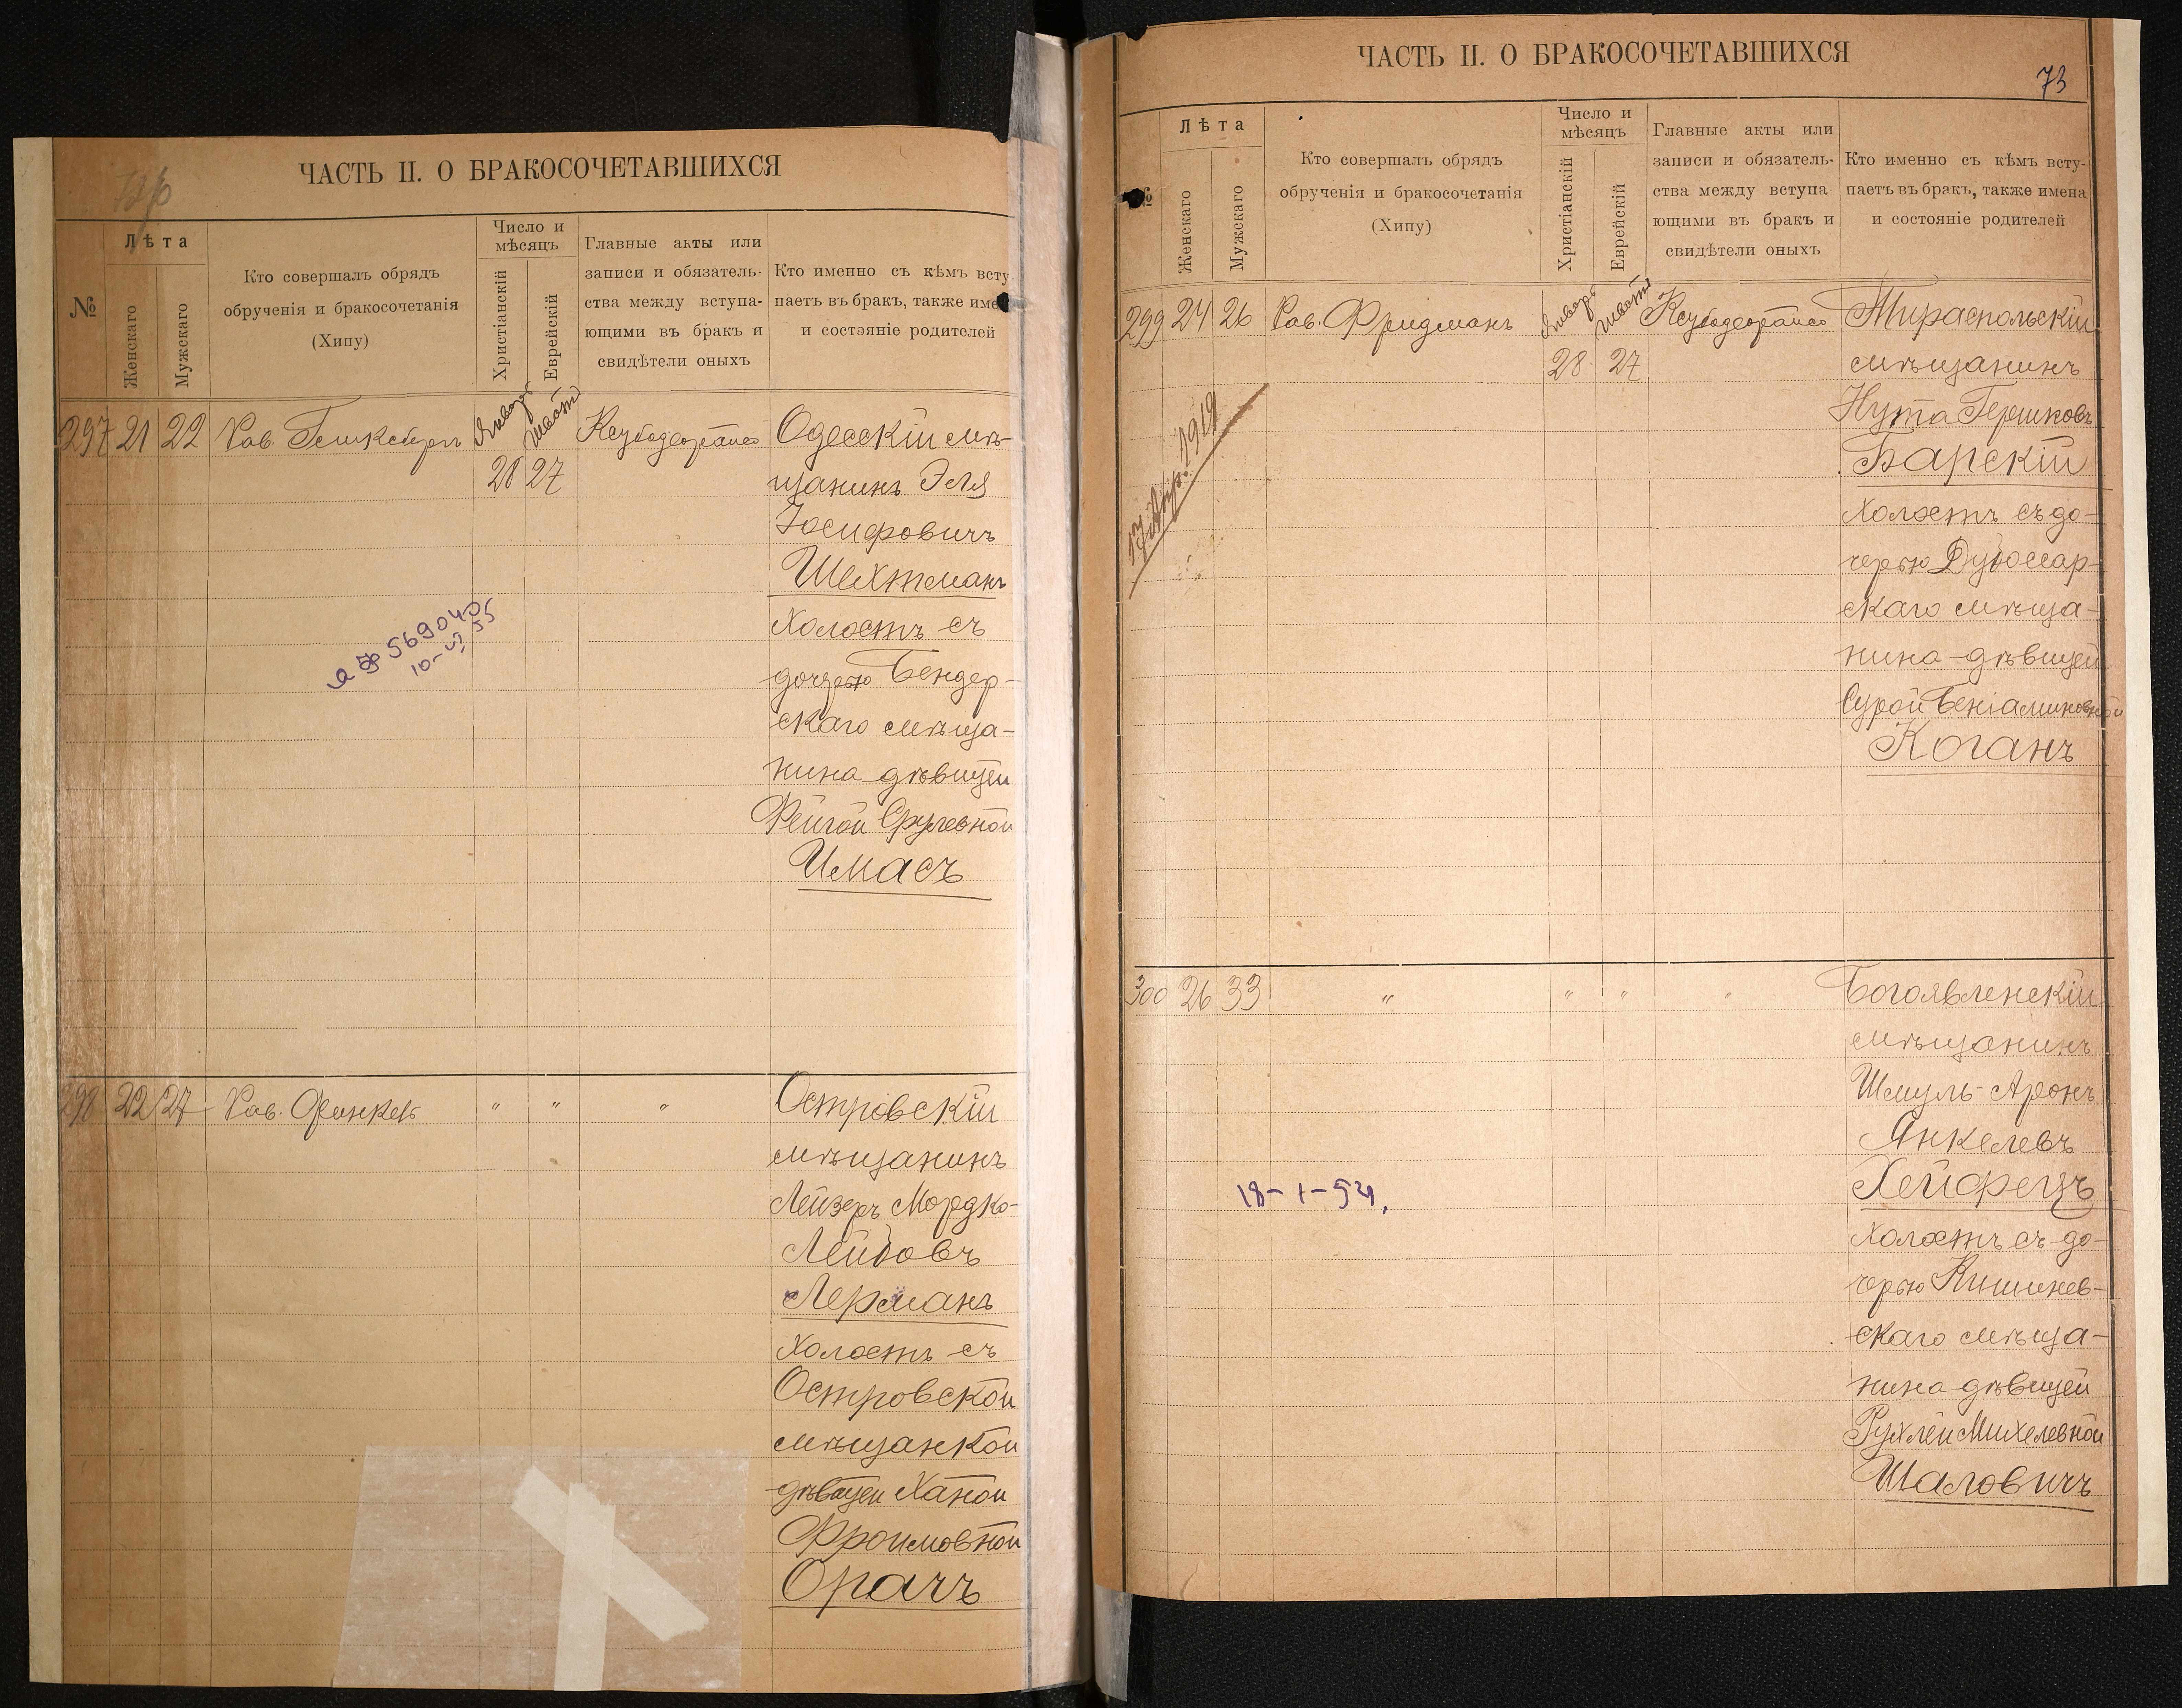 ЧАСТЬ II. О БРАКОСОЧЕТАВШИХСЯ
№
Лѣта
Женскаго
Мужскаго
Кто совершалъ обрядъ
обрученія и бракосочетанія
(Хипу)
Число и
мѣсяцъ
Христіанскій
Еврейскій
Главные акты или
записи и обязатель-
ства между вступа-
ющими въ бракъ и
свидѣтели оныхъ
Кто именно съ кѣмъ всту
паетъ въ бракъ, также име
и состэяніе родителей
297 21 22 Рав.
Январь Шватъ
28 27
Одесскій мѣ-
щанинъ Эля
Іосифовичъ
Шехтманъ
холостъ съ
дочерью Бендер-
скаго мѣща-
нина дѣвицей
Фейгой Срулевной
Имасъ
569040
10-VI 55
298 22 27 Рав. Финкель " " "
Островскій
мѣщанинъ
Лейзеръ Мордко-
Лейбовъ
Лерманъ
холостъ съ
Островской
мѣщанкой
дѣвицей Ханой
Фроимовной
Орачъ
ЧАСТЬ II. О БРАКОСОЧЕТАВШИХСЯ
73
№
Лѣта
Женскаго
Мужскаго
Кто совершалъ обрядъ
обрученія и бракосочетанія
(Хипу)
Число и
мѣсяцъ
Христіанскій
Еврейскій
Главные акты или
записи и обязатель-
ства между вступа
ющими въ бракъ и
свидѣтели оныхъ
Кто именно съ кѣмъ всту-
паетъ въ бракъ, также имена
и состояніе родителей
299 24 26 Рав. Фридманъ
Январь Шватъ
28 27
Тираспольскій
мѣщанинъ
Нута Гершковъ
Барскій
холостъ съ до-
черью Дубоссар-
скаго мѣща-
нина дѣвицей
Сурой Беніаминовной
Коганъ
17 Апр. 1919
300 26 33 " " " "
Богоявленскій
мѣщанинъ
Шмуль-Аронъ
Янкелевъ
Хейфецъ
холостъ съ до-
черью Кишинев-
скаго мѣща-
нина дѣвицей
Рухлей Михелевной
Шаловичъ
18-1-54.